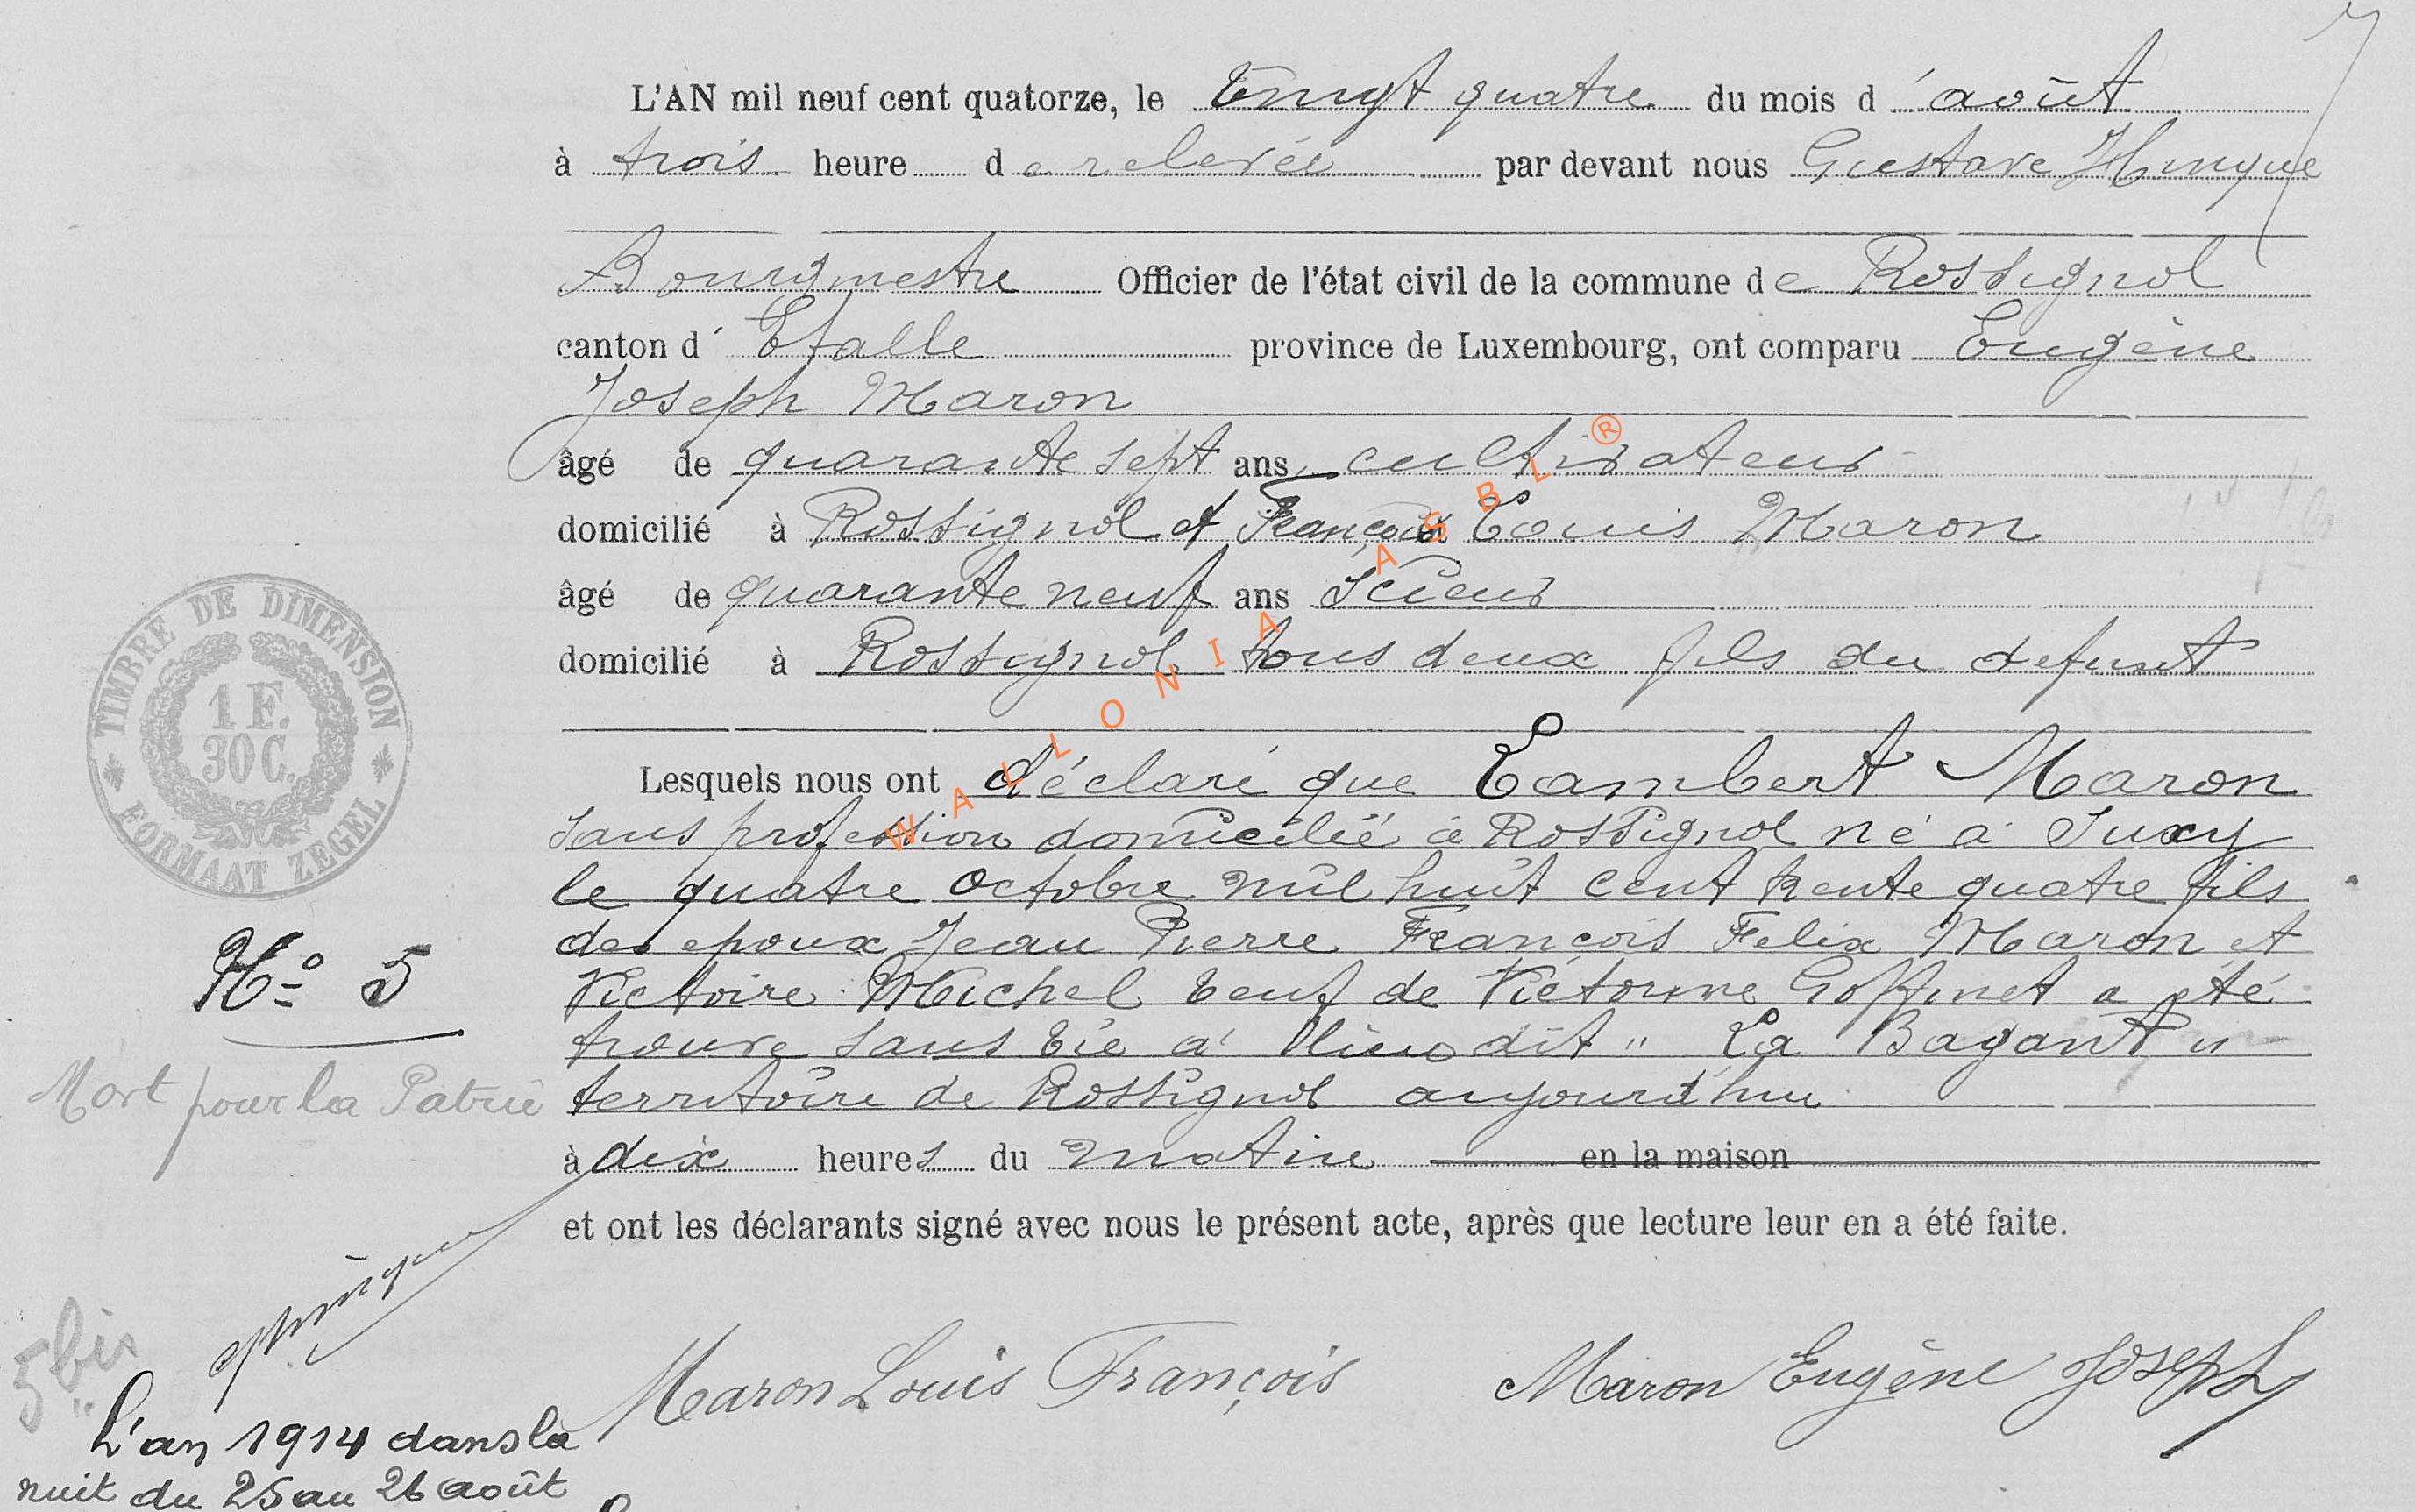 L'AN mil neuf cent quatorze, le vingt quatre du mois d'août
à trois heure de relevée par devant nous Gustave Hurique
Bourgmestre Officier de l'état civil de la commune de Rossignol
canton d'Etalle province de Luxembourg, ont comparu Eugène
Joseph Maron
âgé de quarante sept ans, cultivateur
domicilié à Rossignol et François Louis Maron
âgé de quarante neuf ans scieur
domicilié à Rossignol tous deux fils du defunt
Lesquels nous ont déclaré que Lambert Maron
sans profession domicilié à Rossignol né à Suxy
le quatre octobre mil huit cent trente quatre fils
des epoux Jean Pierre François Felix Maron et
Victoire Michel veuf de Victorine Goffinet a été
trouve sans vie a lieu dit " La Bagant "
territoire de Rossignol aujourd'hui
à dix heures du matin en la maison
et ont les déclarants signé avec nous le présent acte, après que lecture leur en a été faite.
Maron Louis François Maron Eugène Joseph
TIMBRE DE DIMENSION
1 F.
30 C.
FORMAAT ZEGEL
No 5
Mort pour la Patrie
5 bis
L'an 1914 dans la
nuit du 25 au 26 août
WALLONIA ASBL ®